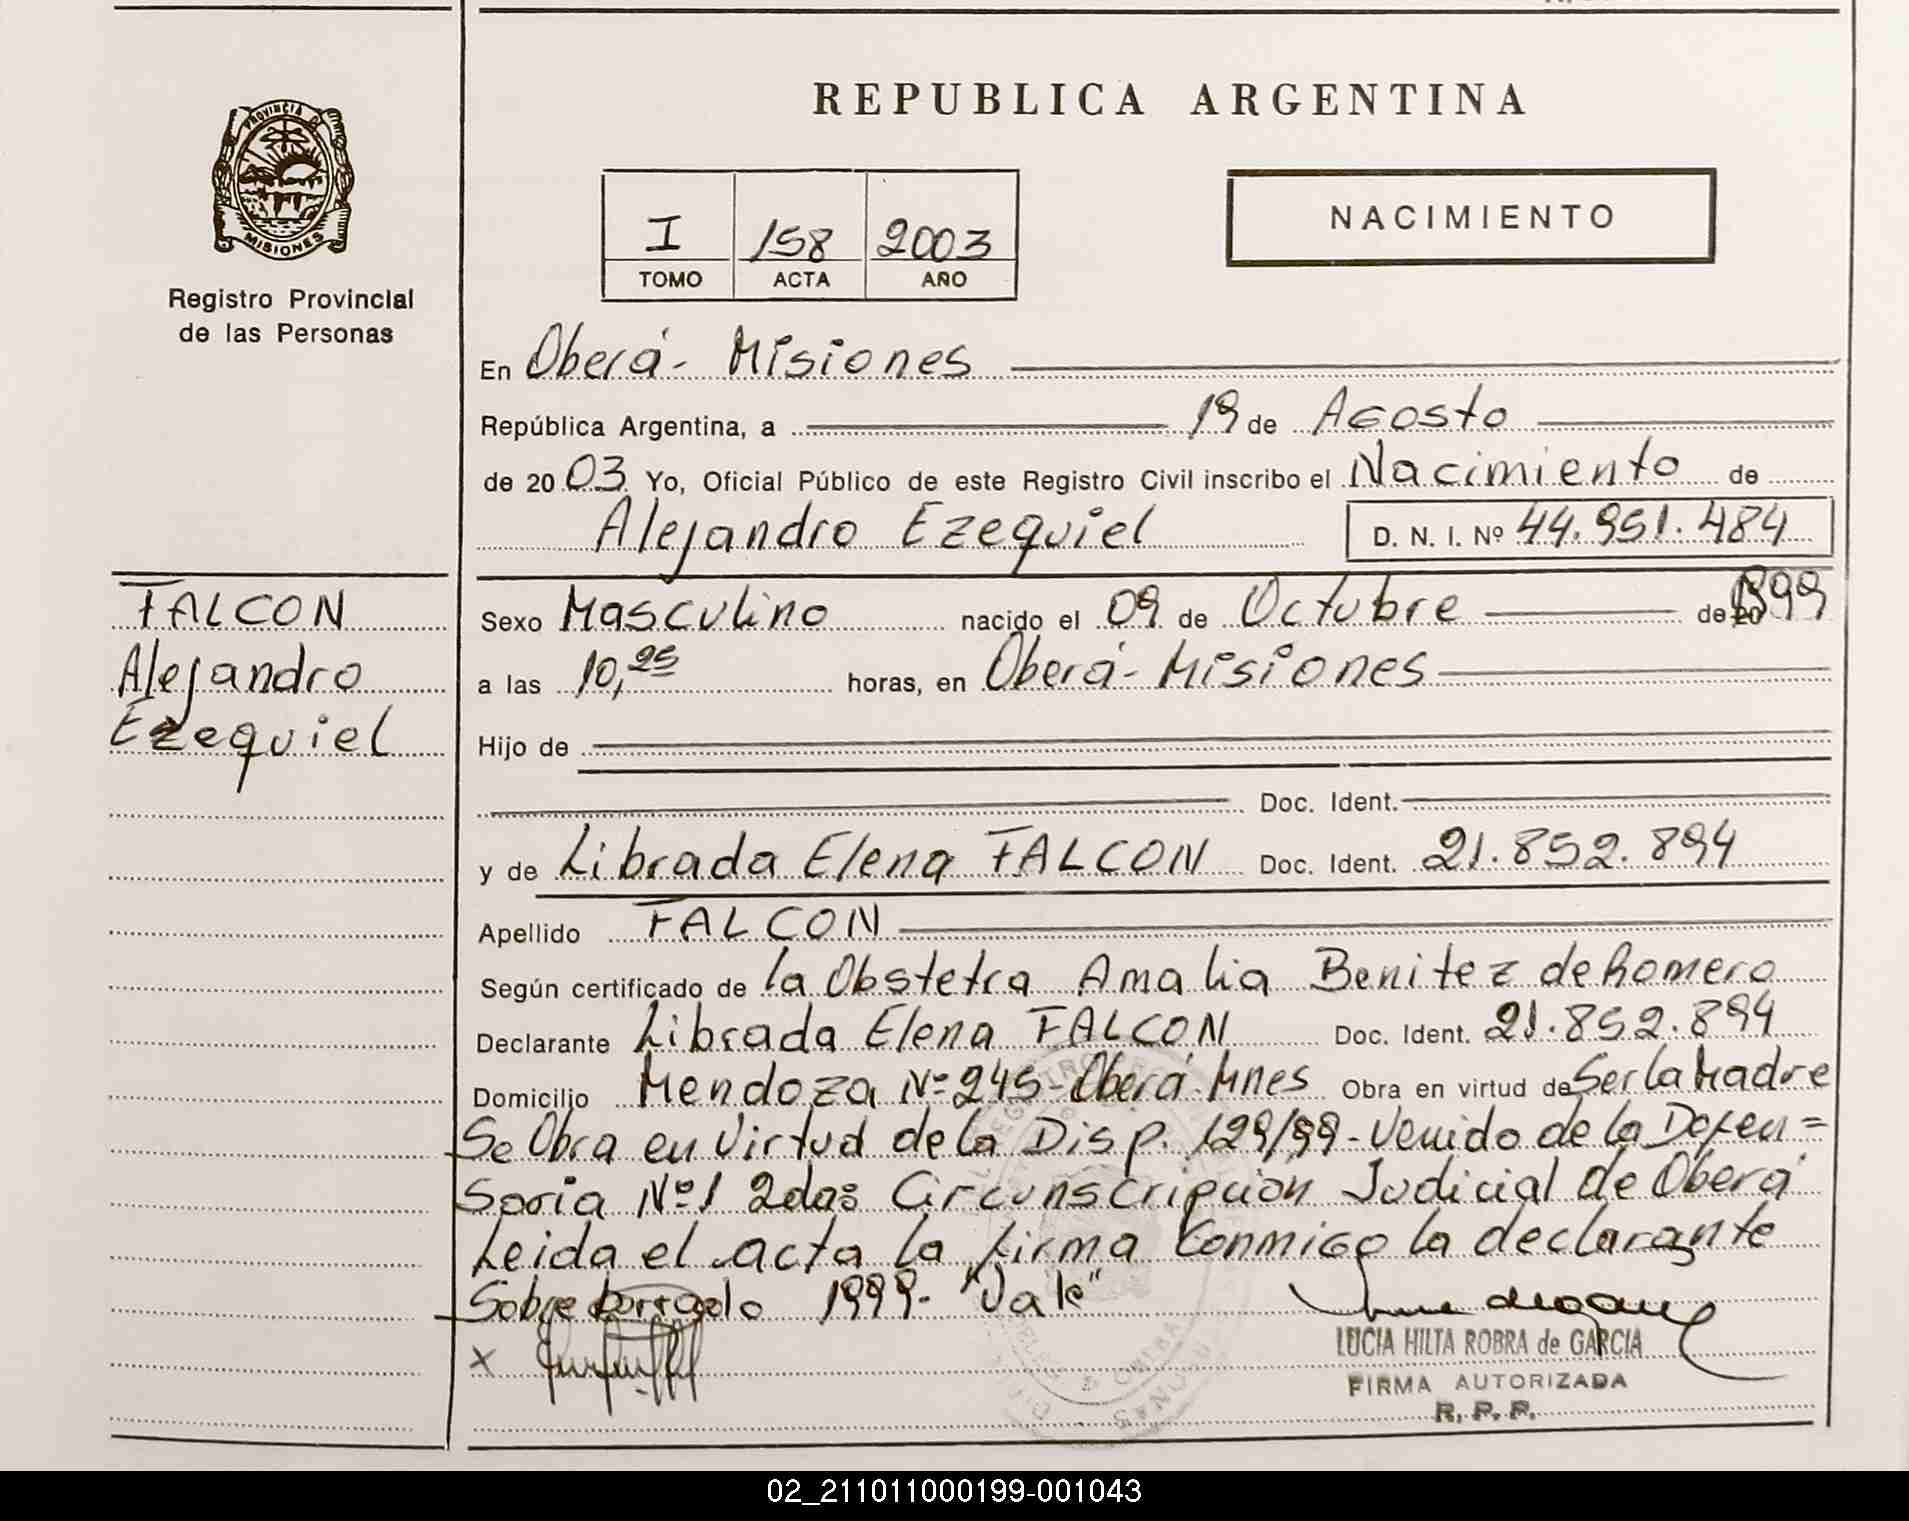 REPUBLICA ARGENTINA
PROVINCIA D
MISIONES
Registro Provincial
de las Personas
I 158 2003
TOMO ACTA AÑO
NACIMIENTO
En Oberá - Misiones
República Argentina, a 19 de Agosto
de 20 03 Yo, Oficial Público de este Registro Civil inscribo el Nacimiento de
Alejandro Ezequiel D. N. I. Nº 44.951.484
FALCON
Alejandro
Ezequiel
Sexo Masculino nacido el 09 de Octubre de 1999
a las 10,25 horas, en Oberá - Misiones
Hijo de
Doc. Ident.
y de Librada Elena FALCON Doc. Ident. 21.852.894
Apellido FALCON
Según certificado de la Obstetra Amalia Benitez de Romero
Declarante Librada Elena FALCON Doc. Ident. 21.852.894
Domicilio Mendoza Nº 245 - Oberá - Mnes Obra en virtud de Ser la Madre
Se Obra en Virtud de la Disp. 129/99 - Venido de la Defen=
soria Nº 1 2das Circunscripción Judicial de Oberá
Leida el acta la firma Conmigo la declarante
Sobre borrado 1999 - "Vale"
x
LUCIA HILTA ROBRA de GARCIA
FIRMA AUTORIZADA
R. P. P.
02_211011000199-001043